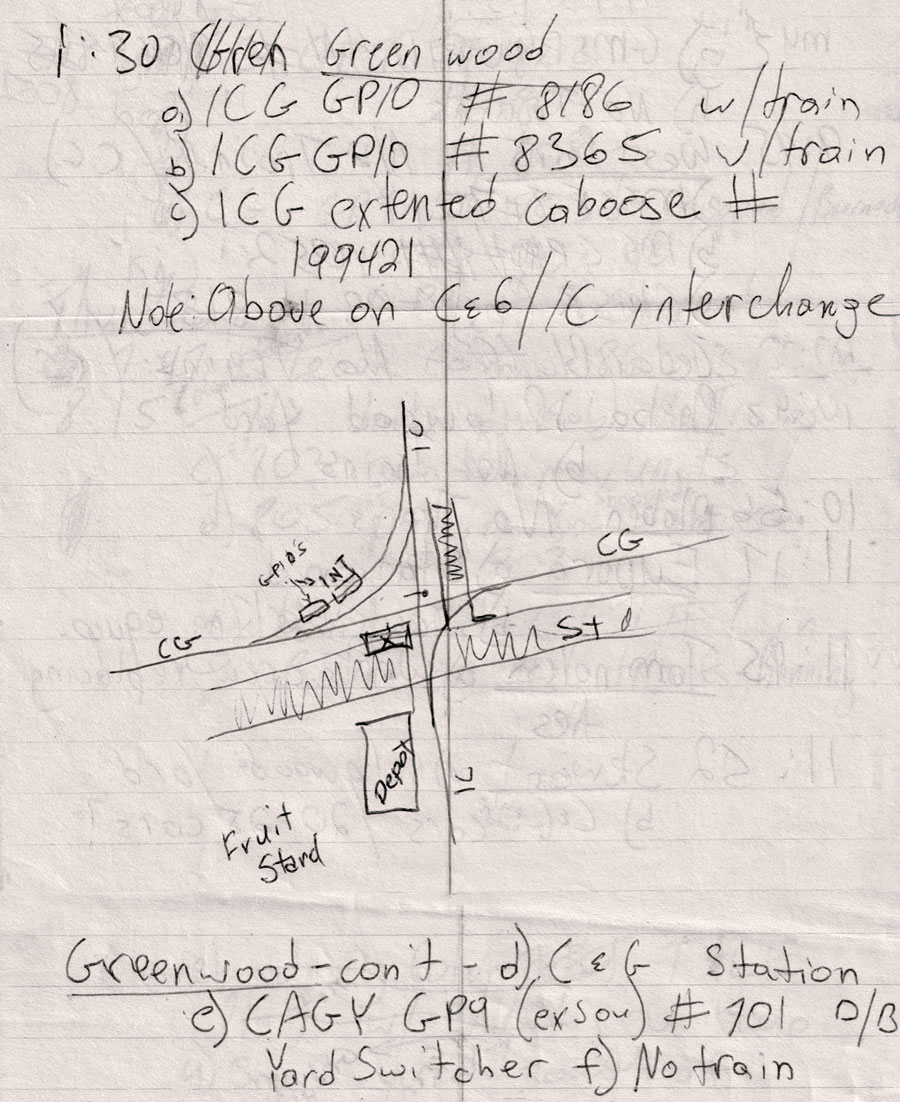 1:30 Green wood
a) ICG GP10 # 8186 w/train
b) ICG GP10 # 8365 w/train
c) ICG extented caboose #
199421
Note: Above on C&G/IC interchange
IC
CG
GPIO'S
INT
CG
St
Depot
IC
Fruit
Stand
Greenwood-con't - d) C&G Station
e) CAGY GP9 (exsou) # 701 D/B
Yard Switcher f) No train